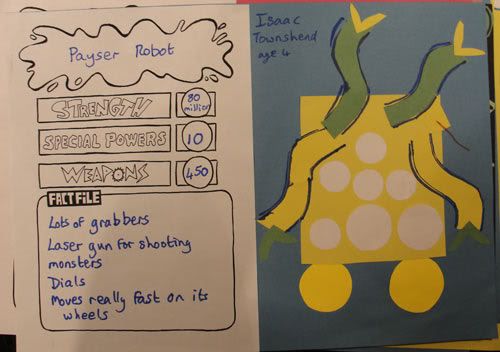 Payser Robot
STRENGTH
80 million
SPECIAL POWERS
10
WEAPONS
450
FACT FILE
Lots of grabbers
Laser gun for shooting
monsters
Dials
Moves really fast on its
wheels
Isaac
Townshend
age 4